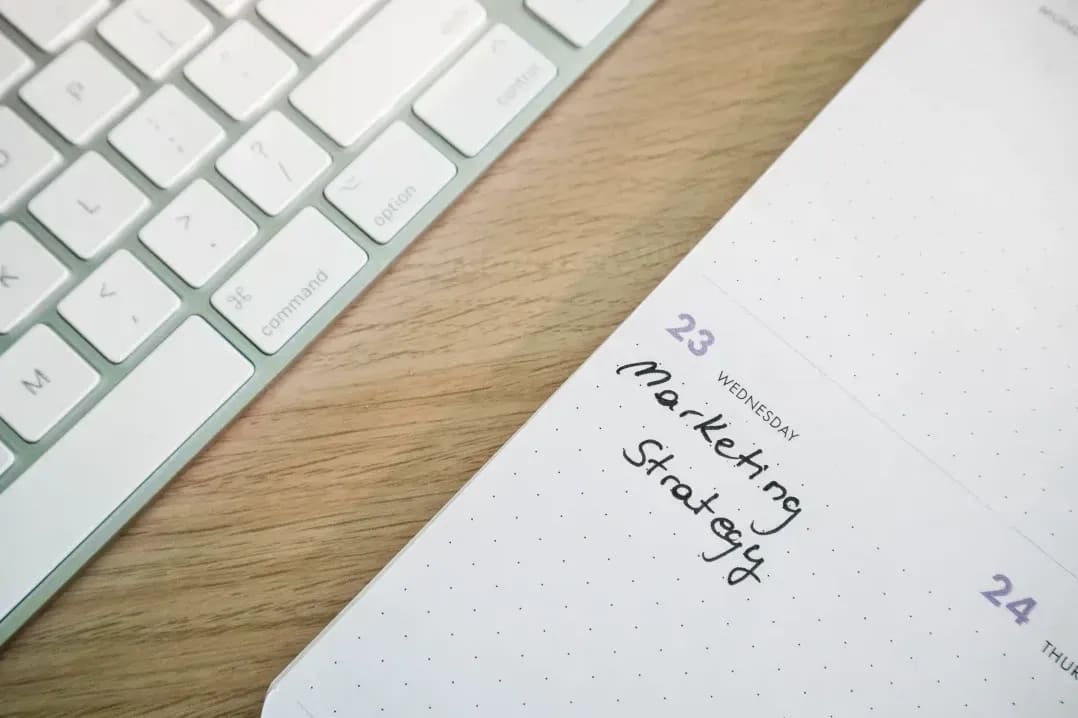 P
L
K
M
? /
> .
< ,
control
option
⌘ command
23
WEDNESDAY
Marketing
Strategy
24
THUR